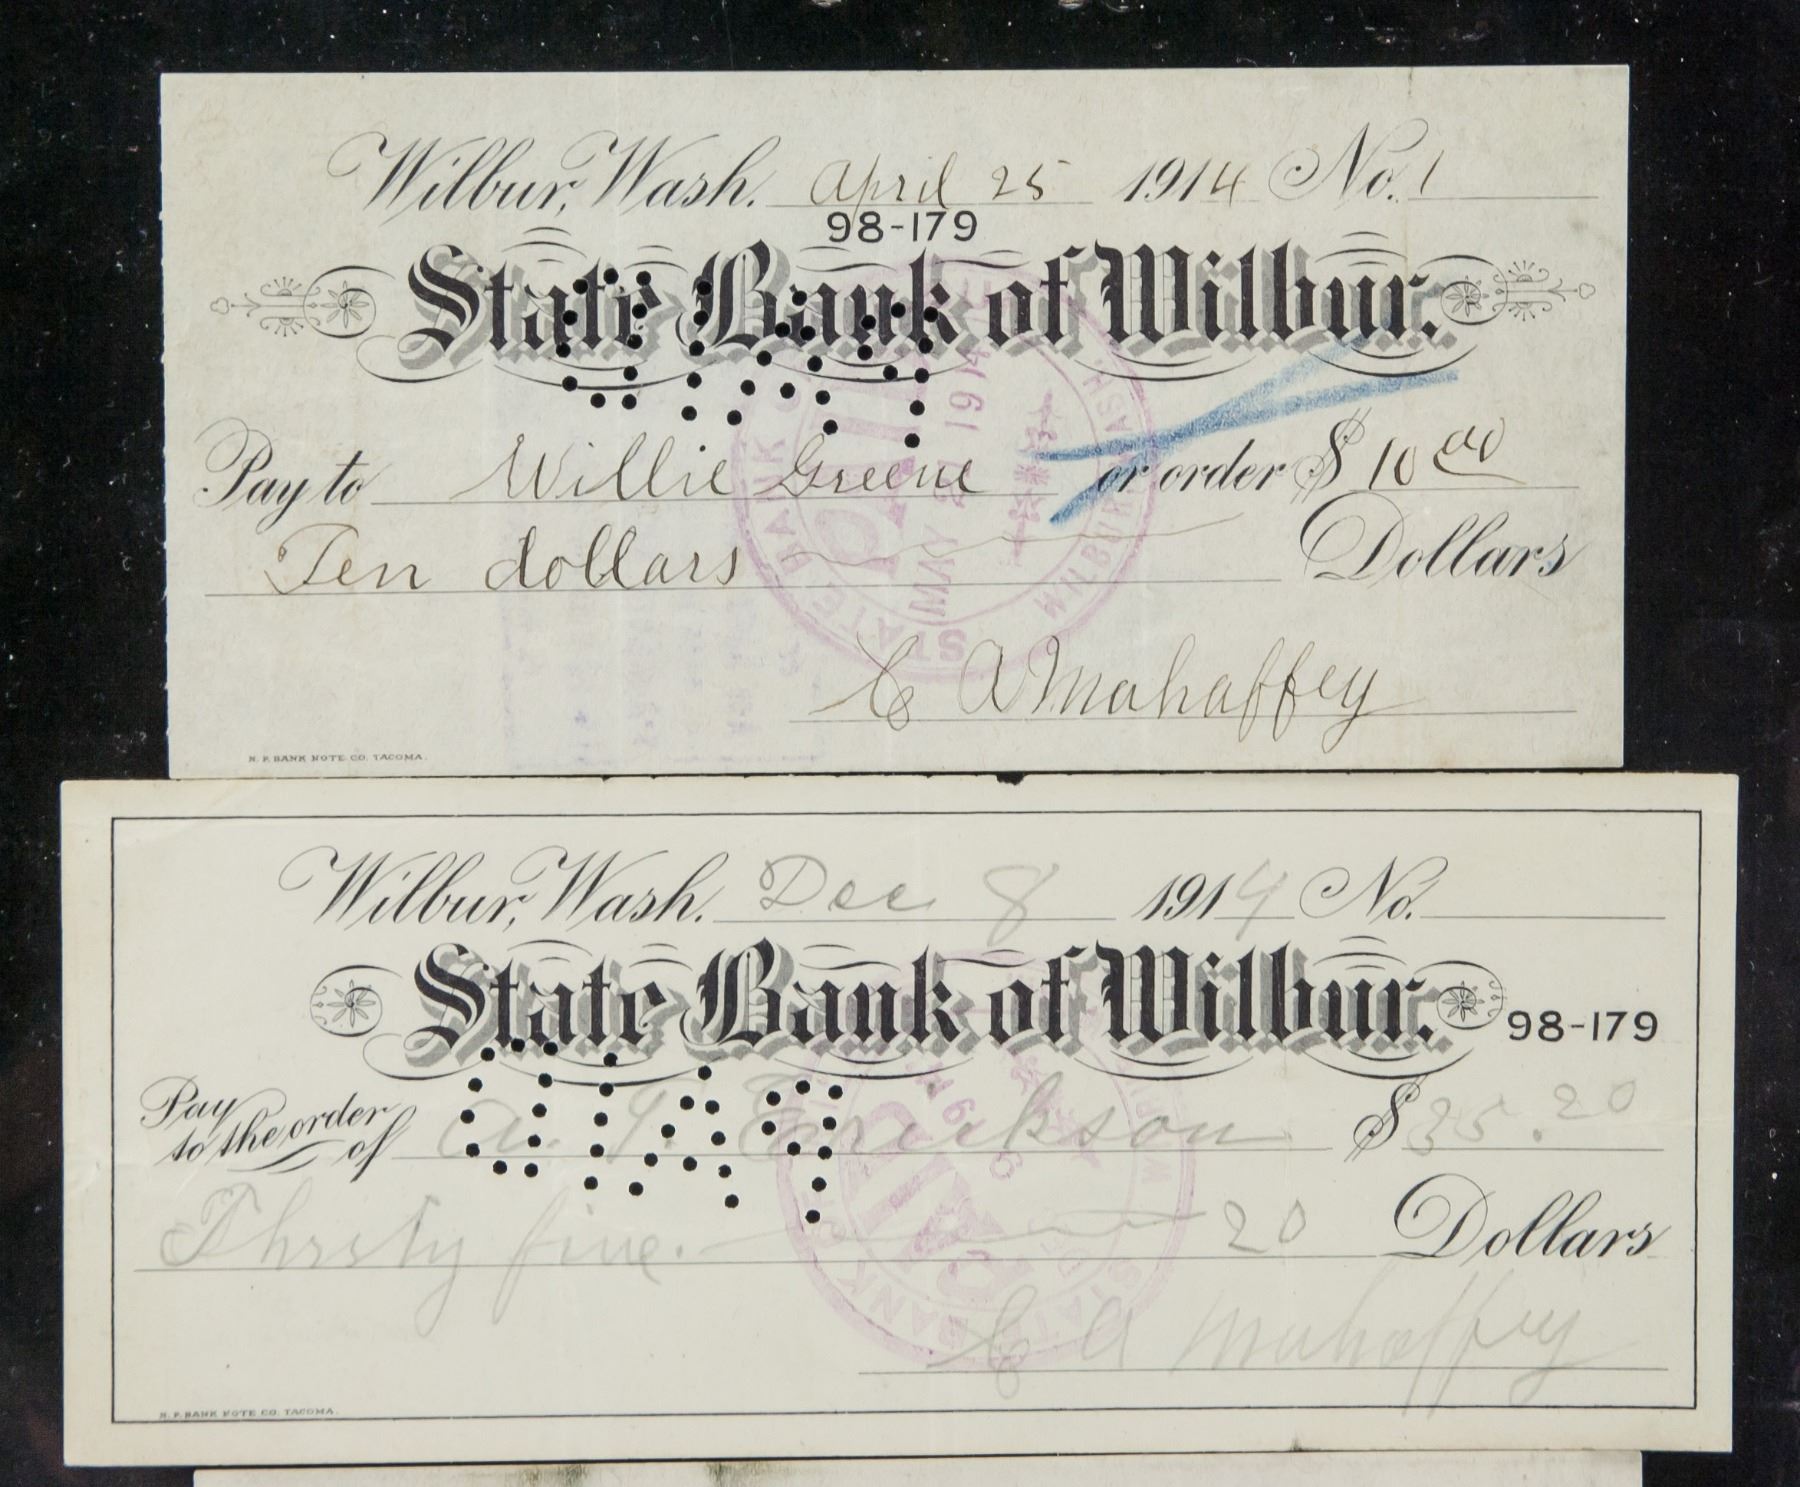 Wilbur, Wash. April 25 1914 No. 1
98-179
State Bank of Wilbur.
Pay to Willie Greene or order $ 10 00
Ten dollars Dollars
STATE BANK OF WILBUR WASH
PAID
MAY 1914
C A Mahaffey
N. P. BANK NOTE CO. TACOMA.
Wilbur, Wash. Dec 8 1914 No.
State Bank of Wilbur. 98-179
Pay to the order of A. Erickson $ 35.20
Thirsty five. 20 Dollars
STATE BANK
PAID
C A Mahaffey
N. P. BANK NOTE CO. TACOMA.